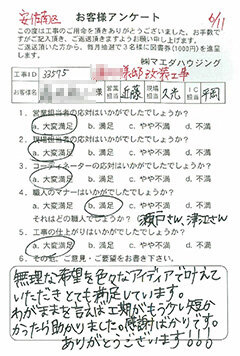 安佐南区
6/11
お客様アンケート
この度は工事のご用命を頂きありがとうございました。お手数で
すがご記入頂き、ご返送頂きますようお願い申し上げます。
ご返送頂いた方から、毎月抽選で3名様に図書券(1000円)を進呈
します。
㈱マエダハウジング
工事ID 33575 邸改装工事
お客様名 営業担当 近藤 現場担当 久光 IC担当 平岡
1. 営業担当者の応対はいかがでしたでしょうか?
a. 大変満足 b. 満足 c. やや不満 d. 不満
2. 現場担当者の応対はいかがでしたでしょうか?
a. 大変満足 b. 満足 c. やや不満 d. 不満
3. コーディネーターの応対はいかがでしたでしょうか?
a. 大変満足 b. 満足 c. やや不満 d. 不満
4. 職人のマナーはいかがでしたでしょうか?
a. 大変満足 b. 満足 c. やや不満 d. 不満
それはどの職人でしょうか? 瀬戸さん、津江さん
5. 工事の仕上がりはいかがでしたでしょうか?
a. 大変満足 b. 満足 c. やや不満 d. 不満
6. その他、ご意見・ご要望をお書き下さい。
無理な希望を色々なアイディアで叶えて
いただきとても満足しています。
わがままを言えば工期がもう少し短か
かったら助かりました。感謝ばかりです。
ありがとうございます!!!